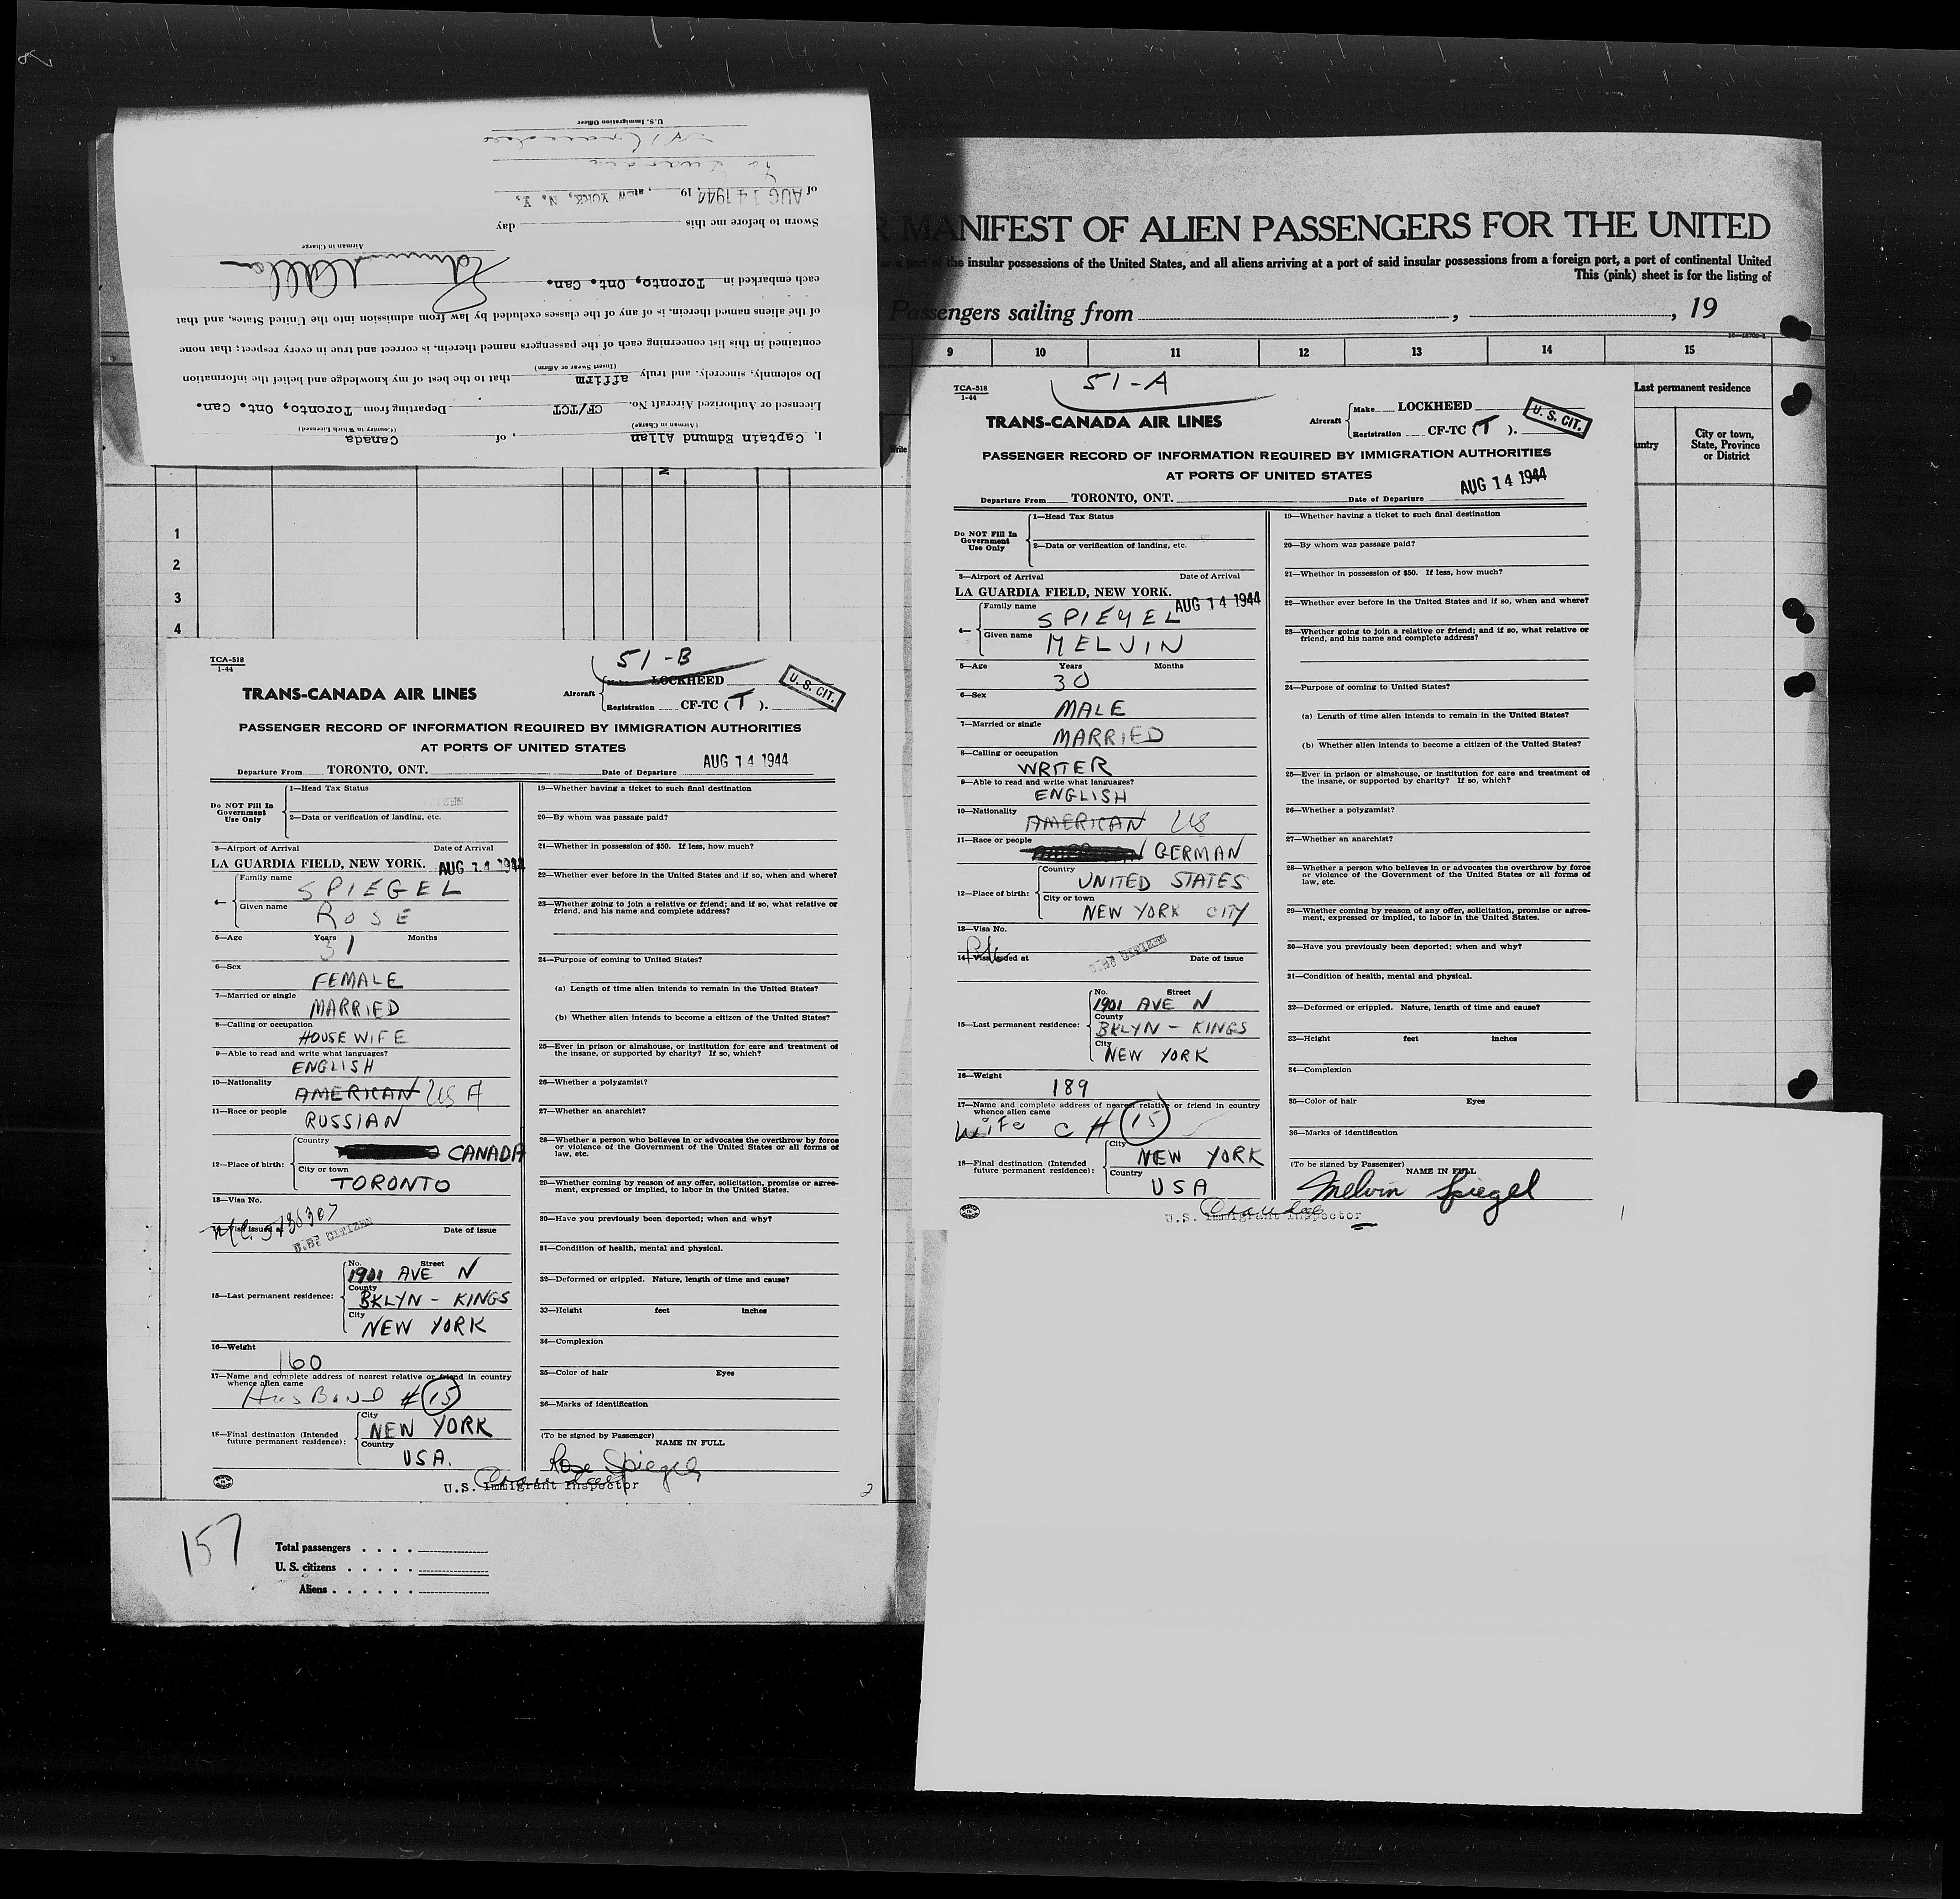 U.S. Immigration Officer
of AUG 14 1944, 19__, at NEW YORK, N. Y.
Sworn to before me this ____ day
Airman in Charge
each embarked in Toronto, Ont. Can.
of the aliens named therein, is of any of the classes excluded by law from admission into the United States, and that
contained in this list concerning each of the passengers named therein, is correct and true in every respect; that none
(Insert Swear or Affirm)
Do solemnly, sincerely, and truly affirm that to the best of my knowledge and belief the information
Licensed or Authorized Aircraft No. CF/TCT Departing from Toronto, Ont. Can.
(Airman in Charge) (Country in Which Licensed)
I, Captain Edmund Allan, of Canada
R MANIFEST OF ALIEN PASSENGERS FOR THE UNITED
the insular possessions of the United States, and all aliens arriving at a port of said insular possessions from a foreign port, a port of continental United
This (pink) sheet is for the listing of
Passengers sailing from ____, ____, 19
9 10 11 12 13 14 15
Last permanent residence
City or town, State, Province or District
1
2
3
4
TCA-518
1-44
51-B
TRANS-CANADA AIR LINES
Aircraft Make LOCKHEED
Registration CF-TC (T).
U. S. CIT.
PASSENGER RECORD OF INFORMATION REQUIRED BY IMMIGRATION AUTHORITIES
AT PORTS OF UNITED STATES
Departure From TORONTO, ONT. Date of Departure AUG 14 1944
Do NOT Fill In Government Use Only
1—Head Tax Status
2—Data or verification of landing, etc.
3—Airport of Arrival Date of Arrival
LA GUARDIA FIELD, NEW YORK. AUG 14 1944
4— Family name SPIEGEL
Given name ROSE
5—Age Years 31 Months
6—Sex FEMALE
7—Married or single MARRIED
8—Calling or occupation HOUSEWIFE
9—Able to read and write what languages? ENGLISH
10—Nationality AMERICAN USA
11—Race or people RUSSIAN
12—Place of birth: Country CANADA
City or town TORONTO
13—Visa No.
14—Visa issued at Date of issue
15—Last permanent residence: No. Street 1901 AVE N
County BKLYN - KINGS
City NEW YORK
16—Weight 160
17—Name and complete address of nearest relative or friend in country
whence alien came
HusBand # 15
18—Final destination (Intended future permanent residence): City NEW YORK
Country USA.
19—Whether having a ticket to such final destination
20—By whom was passage paid?
21—Whether in possession of $50. If less, how much?
22—Whether ever before in the United States and if so, when and where?
23—Whether going to join a relative or friend; and if so, what relative or
friend, and his name and complete address?
24—Purpose of coming to United States?
(a) Length of time alien intends to remain in the United States?
(b) Whether alien intends to become a citizen of the United States?
25—Ever in prison or almshouse, or institution for care and treatment of
the insane, or supported by charity? If so, which?
26—Whether a polygamist?
27—Whether an anarchist?
28—Whether a person who believes in or advocates the overthrow by force
or violence of the Government of the United States or all forms of
law, etc.
29—Whether coming by reason of any offer, solicitation, promise or agree-
ment, expressed or implied, to labor in the United States.
30—Have you previously been deported; when and why?
31—Condition of health, mental and physical.
32—Deformed or crippled. Nature, length of time and cause?
33—Height feet inches
34—Complexion
35—Color of hair Eyes
36—Marks of identification
(To be signed by Passenger) NAME IN FULL
Rose Spiegel
U.S. Immigrant Inspector
2
157
Total passengers
U. S. citizens
Aliens
TCA-518
1-44
51-A
TRANS-CANADA AIR LINES
Aircraft Make LOCKHEED
Registration CF-TC (T).
U. S. CIT.
PASSENGER RECORD OF INFORMATION REQUIRED BY IMMIGRATION AUTHORITIES
AT PORTS OF UNITED STATES
Departure From TORONTO, ONT. Date of Departure AUG 14 1944
Do NOT Fill In Government Use Only
1—Head Tax Status
2—Data or verification of landing, etc.
3—Airport of Arrival Date of Arrival
LA GUARDIA FIELD, NEW YORK. AUG 14 1944
4— Family name SPIEGEL
Given name MELVIN
5—Age Years 30 Months
6—Sex MALE
7—Married or single MARRIED
8—Calling or occupation WRITER
9—Able to read and write what languages? ENGLISH
10—Nationality AMERICAN US
11—Race or people GERMAN
12—Place of birth: Country UNITED STATES
City or town NEW YORK CITY
13—Visa No.
14—Visa issued at Date of issue
15—Last permanent residence: No. Street 1901 AVE N
County BKLYN - KINGS
City NEW YORK
16—Weight 189
17—Name and complete address of nearest relative or friend in country
whence alien came
Wife c # 15
18—Final destination (Intended future permanent residence): City NEW YORK
Country USA
19—Whether having a ticket to such final destination
20—By whom was passage paid?
21—Whether in possession of $50. If less, how much?
22—Whether ever before in the United States and if so, when and where?
23—Whether going to join a relative or friend; and if so, what relative or
friend, and his name and complete address?
24—Purpose of coming to United States?
(a) Length of time alien intends to remain in the United States?
(b) Whether alien intends to become a citizen of the United States?
25—Ever in prison or almshouse, or institution for care and treatment of
the insane, or supported by charity? If so, which?
26—Whether a polygamist?
27—Whether an anarchist?
28—Whether a person who believes in or advocates the overthrow by force
or violence of the Government of the United States or all forms of
law, etc.
29—Whether coming by reason of any offer, solicitation, promise or agree-
ment, expressed or implied, to labor in the United States.
30—Have you previously been deported; when and why?
31—Condition of health, mental and physical.
32—Deformed or crippled. Nature, length of time and cause?
33—Height feet inches
34—Complexion
35—Color of hair Eyes
36—Marks of identification
(To be signed by Passenger) NAME IN FULL
Melvin Spiegel
U.S. Immigrant Inspector